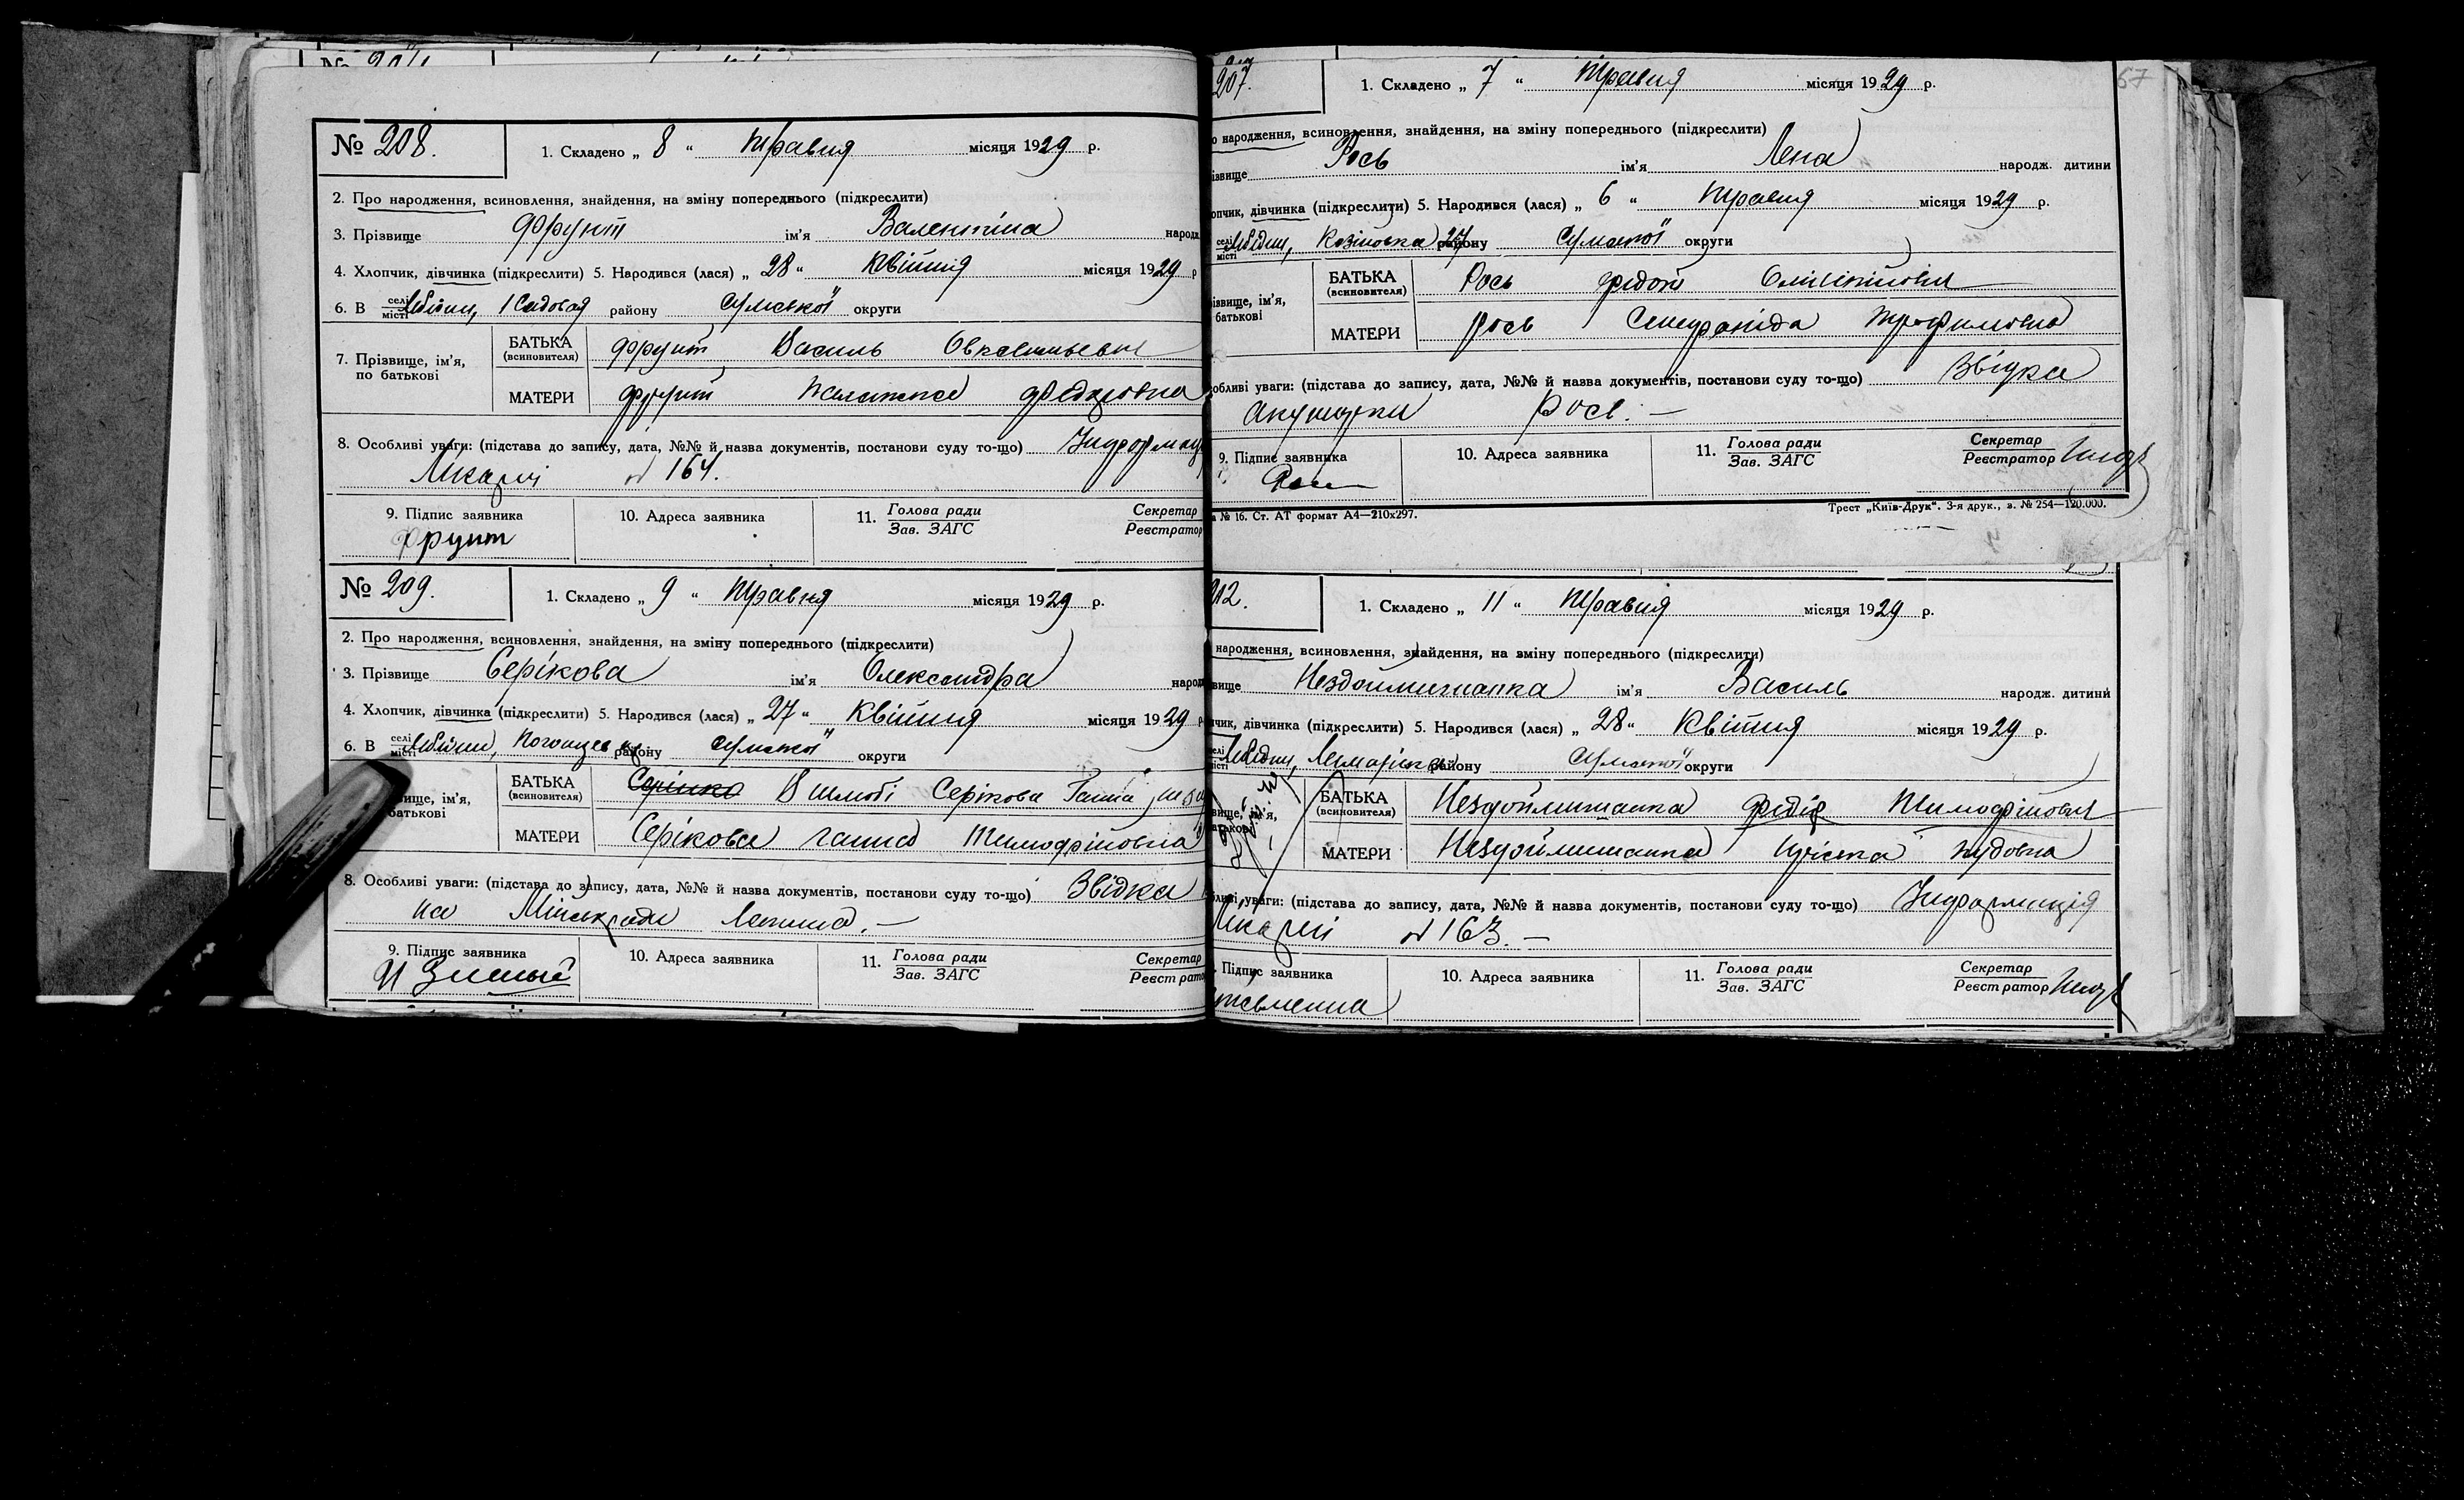 № 208.
1. Складено „ 8 “ травня місяця 1929 р.
2. Про народження, всиновлення, знайдення, на зміну попереднього (підкреслити)
3. Прізвище Фрунт ім’я Валентина народж
4. Хлопчик, дівчинка (підкреслити) 5. Народився (лася) „ 28 “ квітня місяця 1929 р
6. В селі місті Лебідин, 1 Садовая району Сумської округи
7. Прізвище, ім’я, по батькові
БАТЬКА (всиновителя) Фрунт Василь
МАТЕРИ Фрунт Федоровна
8. Особливі уваги: (підстава до запису, дата, №№ й назва документів, постанови суду то-що) Інформац
Лікарні № 164.
9. Підпис заявника
Фрунт
10. Адреса заявника
11. Голова ради Зав. ЗАГС
Секретар Реєстратор
№ 209.
1. Складено „ 9 “ травня місяця 1929 р.
2. Про народження, всиновлення, знайдення, на зміну попереднього (підкреслити)
3. Прізвище Серікова ім’я Олександра народ
4. Хлопчик, дівчинка (підкреслити) 5. Народився (лася) „ 27 “ квітня місяця 1929 р
6. В селі місті Лебідин, району Сумської округи
вище, ім’я, батькові
БАТЬКА (всиновителя) В шлюбі Серікова Ганна
МАТЕРИ Серікова Ганна Тимофіївна
8. Особливі уваги: (підстава до запису, дата, №№ й назва документів, постанови суду то-що) Звідка
на Міськради
9. Підпис заявника
10. Адреса заявника
11. Голова ради Зав. ЗАГС
Секретар Реєстрато
207.
57
1. Складено „ 7 “ травня місяця 1929 р.
о народження, всиновлення, знайдення, на зміну попереднього (підкреслити)
ізвище Рось ім’я Лена народж. дитини
опчик, дівчинка (підкреслити) 5. Народився (лася) „ 6 “ травня місяця 1929 р.
селі місті Лебідин, Козіновка 27 району Сумської округи
ізвище, ім’я, батькові
БАТЬКА (всиновителя) Рось Федот
МАТЕРИ Рось Трофимовна
обливі уваги: (підстава до запису, дата, №№ й назва документів, постанови суду то-що) Звідка
акушерки Рось. —
9. Підпис заявника
Рось
10. Адреса заявника
11. Голова ради Зав. ЗАГС
Секретар Реєстратор
а № 16. Ст. АТ формат А4—210х297.
Трест „Київ-Друк“. 3-я друк., з. № 254—120.000.
212.
1. Складено „ 11 “ травня місяця 1929 р.
народження, всиновлення, знайдення, на зміну попереднього (підкреслити)
вище Нездоймишапка ім’я Василь народж. дитини
пчик, дівчинка (підкреслити) 5. Народився (лася) „ 28 “ квітня місяця 1929 р.
селі місті Лебідин, району Сумської округи
вище, ім’я, батькові
БАТЬКА (всиновителя) Нездоймишапка Федір Тимофійович
МАТЕРИ Нездоймишапка
бливі уваги: (підстава до запису, дата, №№ й назва документів, постанови суду то-що) Інформація
Лікарні № 163. —
Підпис заявника
10. Адреса заявника
11. Голова ради Зав. ЗАГС
Секретар Реєстратор